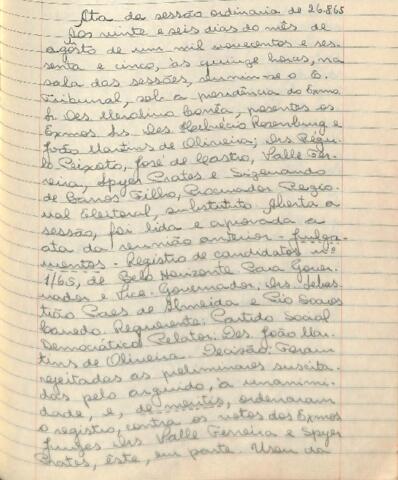 Ata da sessão ordinaria de 26.8.65
Aos vinte e seis dias do mês de
agôsto de um mil novecentos e ses-
senta e cinco, às quinze horas, na
sala das sessões, reuniu-se o E.
Tribunal, sob a presidência do Exmo
Sr. Des. Merolino Corrêa, presentes os
Exmos. Srs. Des. Helvécio Rosenburg e
João Martins de Oliveira; Drs. Régu-
lo Peixoto, José de Castro, Valle Fer-
reira, Spyer Prates e Sizenando
de Barros Filho, Procurador Regio-
nal Eleitoral, substituto. Aberta a
sessão, foi lida e aprovada a
ata da reunião anterior. - Julga-
mentos. - Registro de candidatos nº
1/65, de Belo Horizonte. Para Gover-
nador e Vice-Governador, Drs. Sebas-
tião Paes de Almeida e Pio Soares
Canedo. Requerente: Partido Social
Democrático. Relator: Des. João Mar-
tins de Oliveira. Decisão: Foram
rejeitadas as preliminares suscita-
das pelo arguido, à unanimi-
dade, e, de meritis, ordenaram
o registro, contra os votos dos Exmos
Juízes Drs. Valle Ferreira e Spyer
Prates, êste, em parte. Usou da